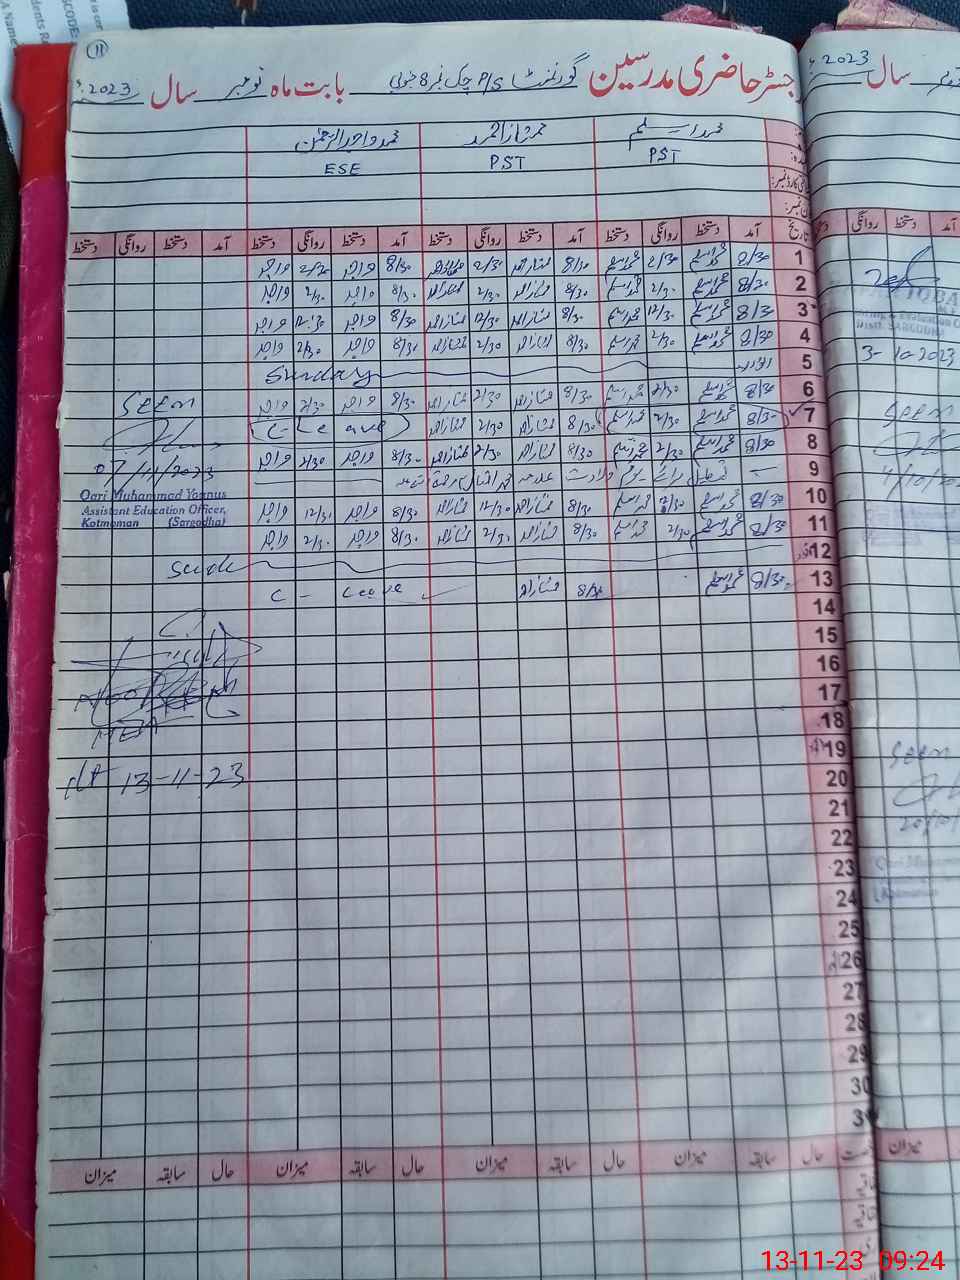 11
رجسٹر حاضری مدرسین گورنمنٹ P/S چک نمبر 8 جنوبی بابت ماہ نومبر سال 2023
محمد اسلم ممتاز احمد محمد واجد الرحمٰن
PST PST ESE
تاریخ آمد دستخط روانگی دستخط آمد دستخط روانگی دستخط آمد دستخط روانگی دستخط آمد دستخط روانگی دستخط
1 8/30 محمد اسلم 2/30 محمد اسلم 8/30 ممتاز احمد 2/30 ممتاز احمد 8/30 واجد 2/30 واجد
2 8/30 محمد اسلم 2/30 محمد اسلم 8/30 ممتاز احمد 2/30 ممتاز احمد 8/30 واجد 2/30 واجد
3 8/30 محمد اسلم 12/30 محمد اسلم 8/30 ممتاز احمد 12/30 ممتاز احمد 8/30 واجد 12/30 واجد
4 8/30 محمد اسلم 2/30 محمد اسلم 8/30 ممتاز احمد 2/30 ممتاز احمد 8/30 واجد 2/30 واجد
5 اتوار Sunday
6 8/30 محمد اسلم 2/30 محمد اسلم 8/30 ممتاز احمد 2/30 ممتاز احمد 8/30 واجد 2/30 واجد
Seen
7 8/30 محمد اسلم 2/30 محمد اسلم 8/30 ممتاز احمد 2/30 ممتاز احمد C-Leave
8 8/30 محمد اسلم 2/30 محمد اسلم 8/30 ممتاز احمد 2/30 ممتاز احمد 8/30 واجد 2/30 واجد
07/11/2023
9 تعطیل برائے یوم ولادت علامہ محمد اقبال
Qari Muhammad Younus
Assistant Education Officer,
Kotmoman (Sargodha)
10 8/30 محمد اسلم 12/30 محمد اسلم 8/30 ممتاز احمد 12/30 ممتاز احمد 8/30 واجد 12/30 واجد
11 8/30 محمد اسلم 2/30 محمد اسلم 8/30 ممتاز احمد 2/30 ممتاز احمد 8/30 واجد 2/30 واجد
12 اتوار
13 8/30 محمد اسلم 8/30 ممتاز احمد C - Leave
14
15
16
17
18
19
20
21
22
23
24
25
26
27
28
29
30
31
MEA
dt 13-11-23
حال سابقہ میزان حال سابقہ میزان حال سابقہ میزان حال سابقہ میزان
سال 2023
آمد دستخط روانگی
3-10-2023
Seen
4/10/20
Seen
20/10/
میزان
13-11-23 09:24